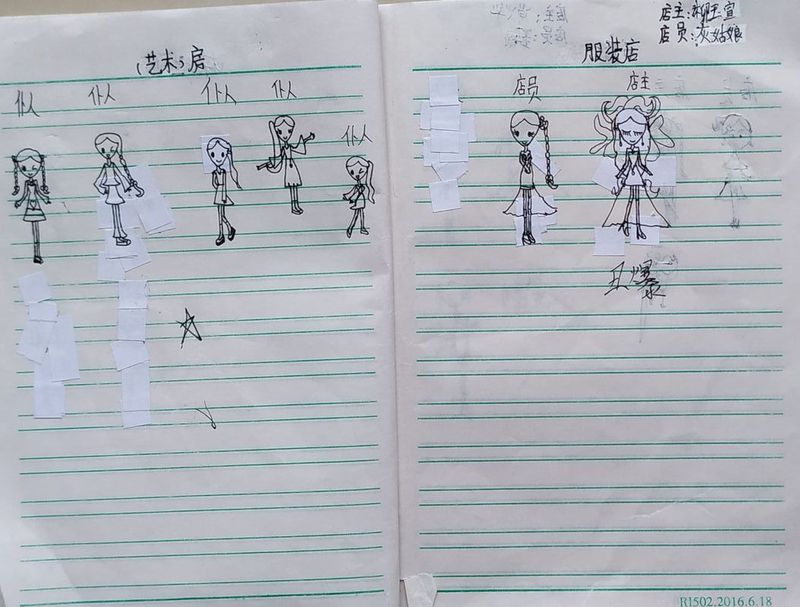 (艺术)房
仆人 仆人 仆人 仆人
仆人
店主:柳玉宣
店员:灰姑娘
服装店
店员 店主
丑爆
R1502.2016.6.18